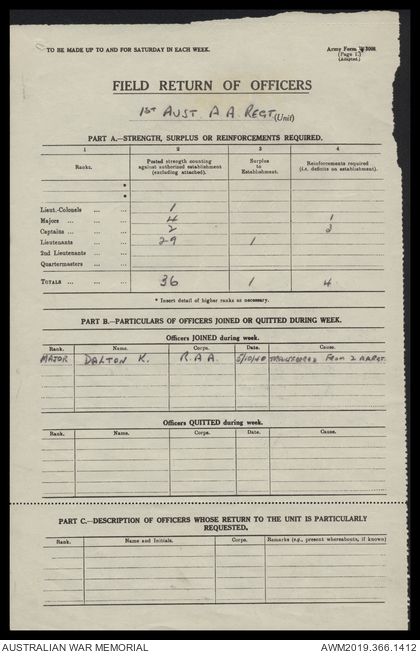 TO BE MADE UP TO AND FOR SATURDAY IN EACH WEEK.
Army Form 3008
(Page 1.)
(Adapted.)
FIELD RETURN OF OFFICERS
1st AUST. A A REGT (Unit)
PART A.—STRENGTH, SURPLUS OR REINFORCEMENTS REQUIRED.
1 2 3 4
Ranks. Posted strength counting against authorized establishment (excluding attached). Surplus to Establishment. Reinforcements required (i.e. deficits on establishment).
*
*
Lieut.-Colonels ... ... 1
Majors ... ... 4 1
Captains ... ... 2 3
Lieutenants ... 29 1
2nd Lieutenants ... ...
Quartermasters ... ...
TOTALS ... ... 36 1 4
* Insert detail of higher ranks as necessary.
PART B.—PARTICULARS OF OFFICERS JOINED OR QUITTED DURING WEEK.
Officers JOINED during week.
Rank. Name. Corps. Date. Cause.
MAJOR DALTON K. R.A.A. 5/10/40 TRANSFERRED FROM 2 AARGT.
Officers QUITTED during week.
Rank. Name. Corps. Date. Cause.
PART C.—DESCRIPTION OF OFFICERS WHOSE RETURN TO THE UNIT IS PARTICULARLY
REQUESTED.
Rank. Name and Initials. Corps. Remarks (e.g., present whereabouts, if known)
AUSTRALIAN WAR MEMORIAL AWM2019.366.1412